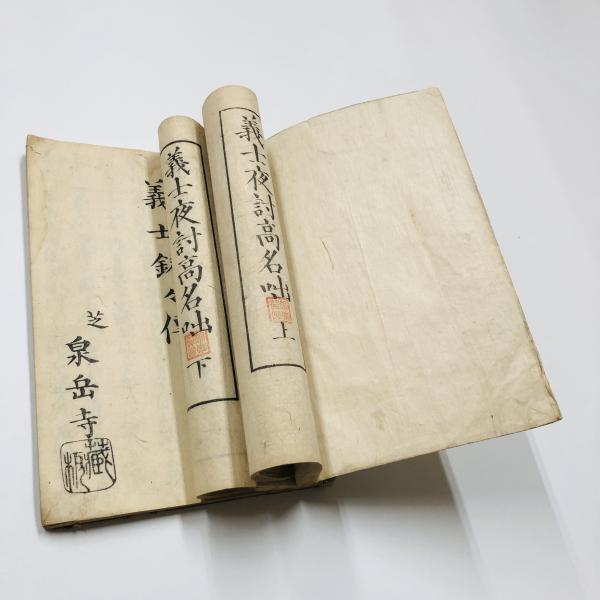 義士夜討高名咄
上
義士夜討高名咄
下
義士銘々伝
芝
泉岳寺
蔵板